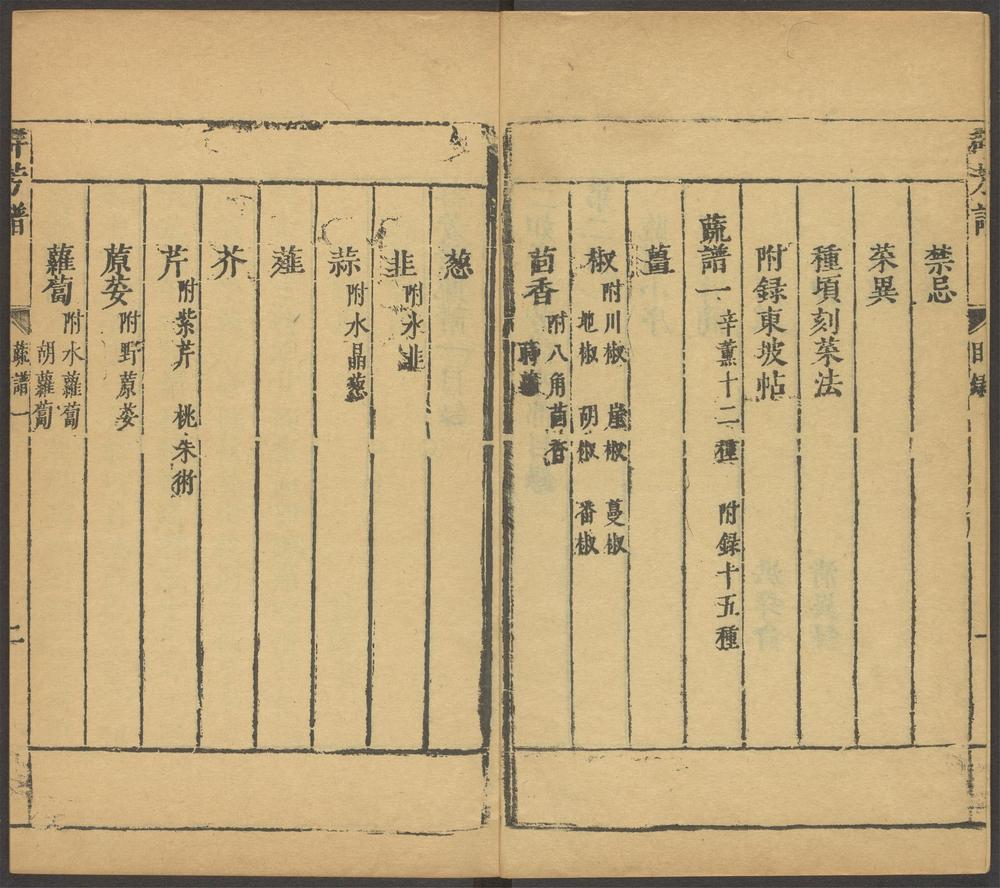 禁忌
菜異
種頃刻菜法
附録東坡帖
蔬譜一 辛薰十二種 附録十五種
薑
椒 附川椒 崖椒 蔓椒
地椒 胡椒 番椒
茴香 附八角茴香
蒔蘿
葱
韭 附水韭
蒜 附水晶葱
薤
芥
芹 附紫芹 桃朱術
蒝荽 附野蒝荽
蘿蔔 附水蘿蔔
胡蘿蔔
群芳譜 目録 一
群芳譜 蔬譜一 二